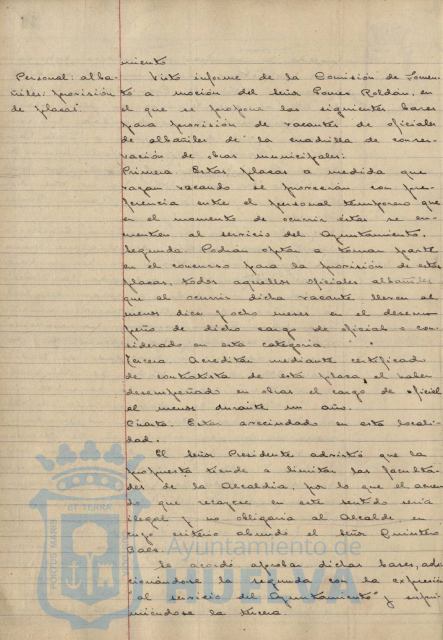 miento
Personal: alba-
ñiles: provisión
de plazas.
Visto informe de la Comisión de Fomen-
to a moción del Señor Pomes Roldán, en
el que se propone las siguientes bases
para provisión de vacantes de oficiales
de albañiles de la cuadrilla de conser-
vación de obras municipales:
Primera. Estas plazas a medida que
vayan vacando se proveerán con pre-
ferencia entre el personal temporero que
en el momento de ocurrir éstas se en-
cuentren al servicio del Ayuntamiento.
Segunda. Podrán optar a tomar parte
en el concurso para la provisión de estas
plazas, todos aquellos oficiales albañiles
que al ocurrir dicha vacante lleven al
menos diez y ocho meses en el desem-
peño de dicho cargo de oficial o con-
siderado en esta categoría.
Tercera. Acreditar mediante certificado
de contratista de esta plaza, el haber
desempeñado en obras el cargo de oficial
al menos durante un año.
Cuarta. Estar avecindado en esta locali-
dad.
El Señor Presidente advirtió que la
propuesta tiende a limitar las faculta-
des de la Alcaldía, por lo que el acuer-
do que recayese en este sentido sería
ilegal y no obligaría al Alcalde, en
cuyo criterio abundó el Señor Quintero
Báez.
Se acordó aprobar dichas bases, adi-
cionándose la segunda con la expresión
"al servicio del Ayuntamiento" y supri-
miéndose la tercera.
PORTUS MARIS
ET TERRÆ
Ayuntamiento de
HUELVA